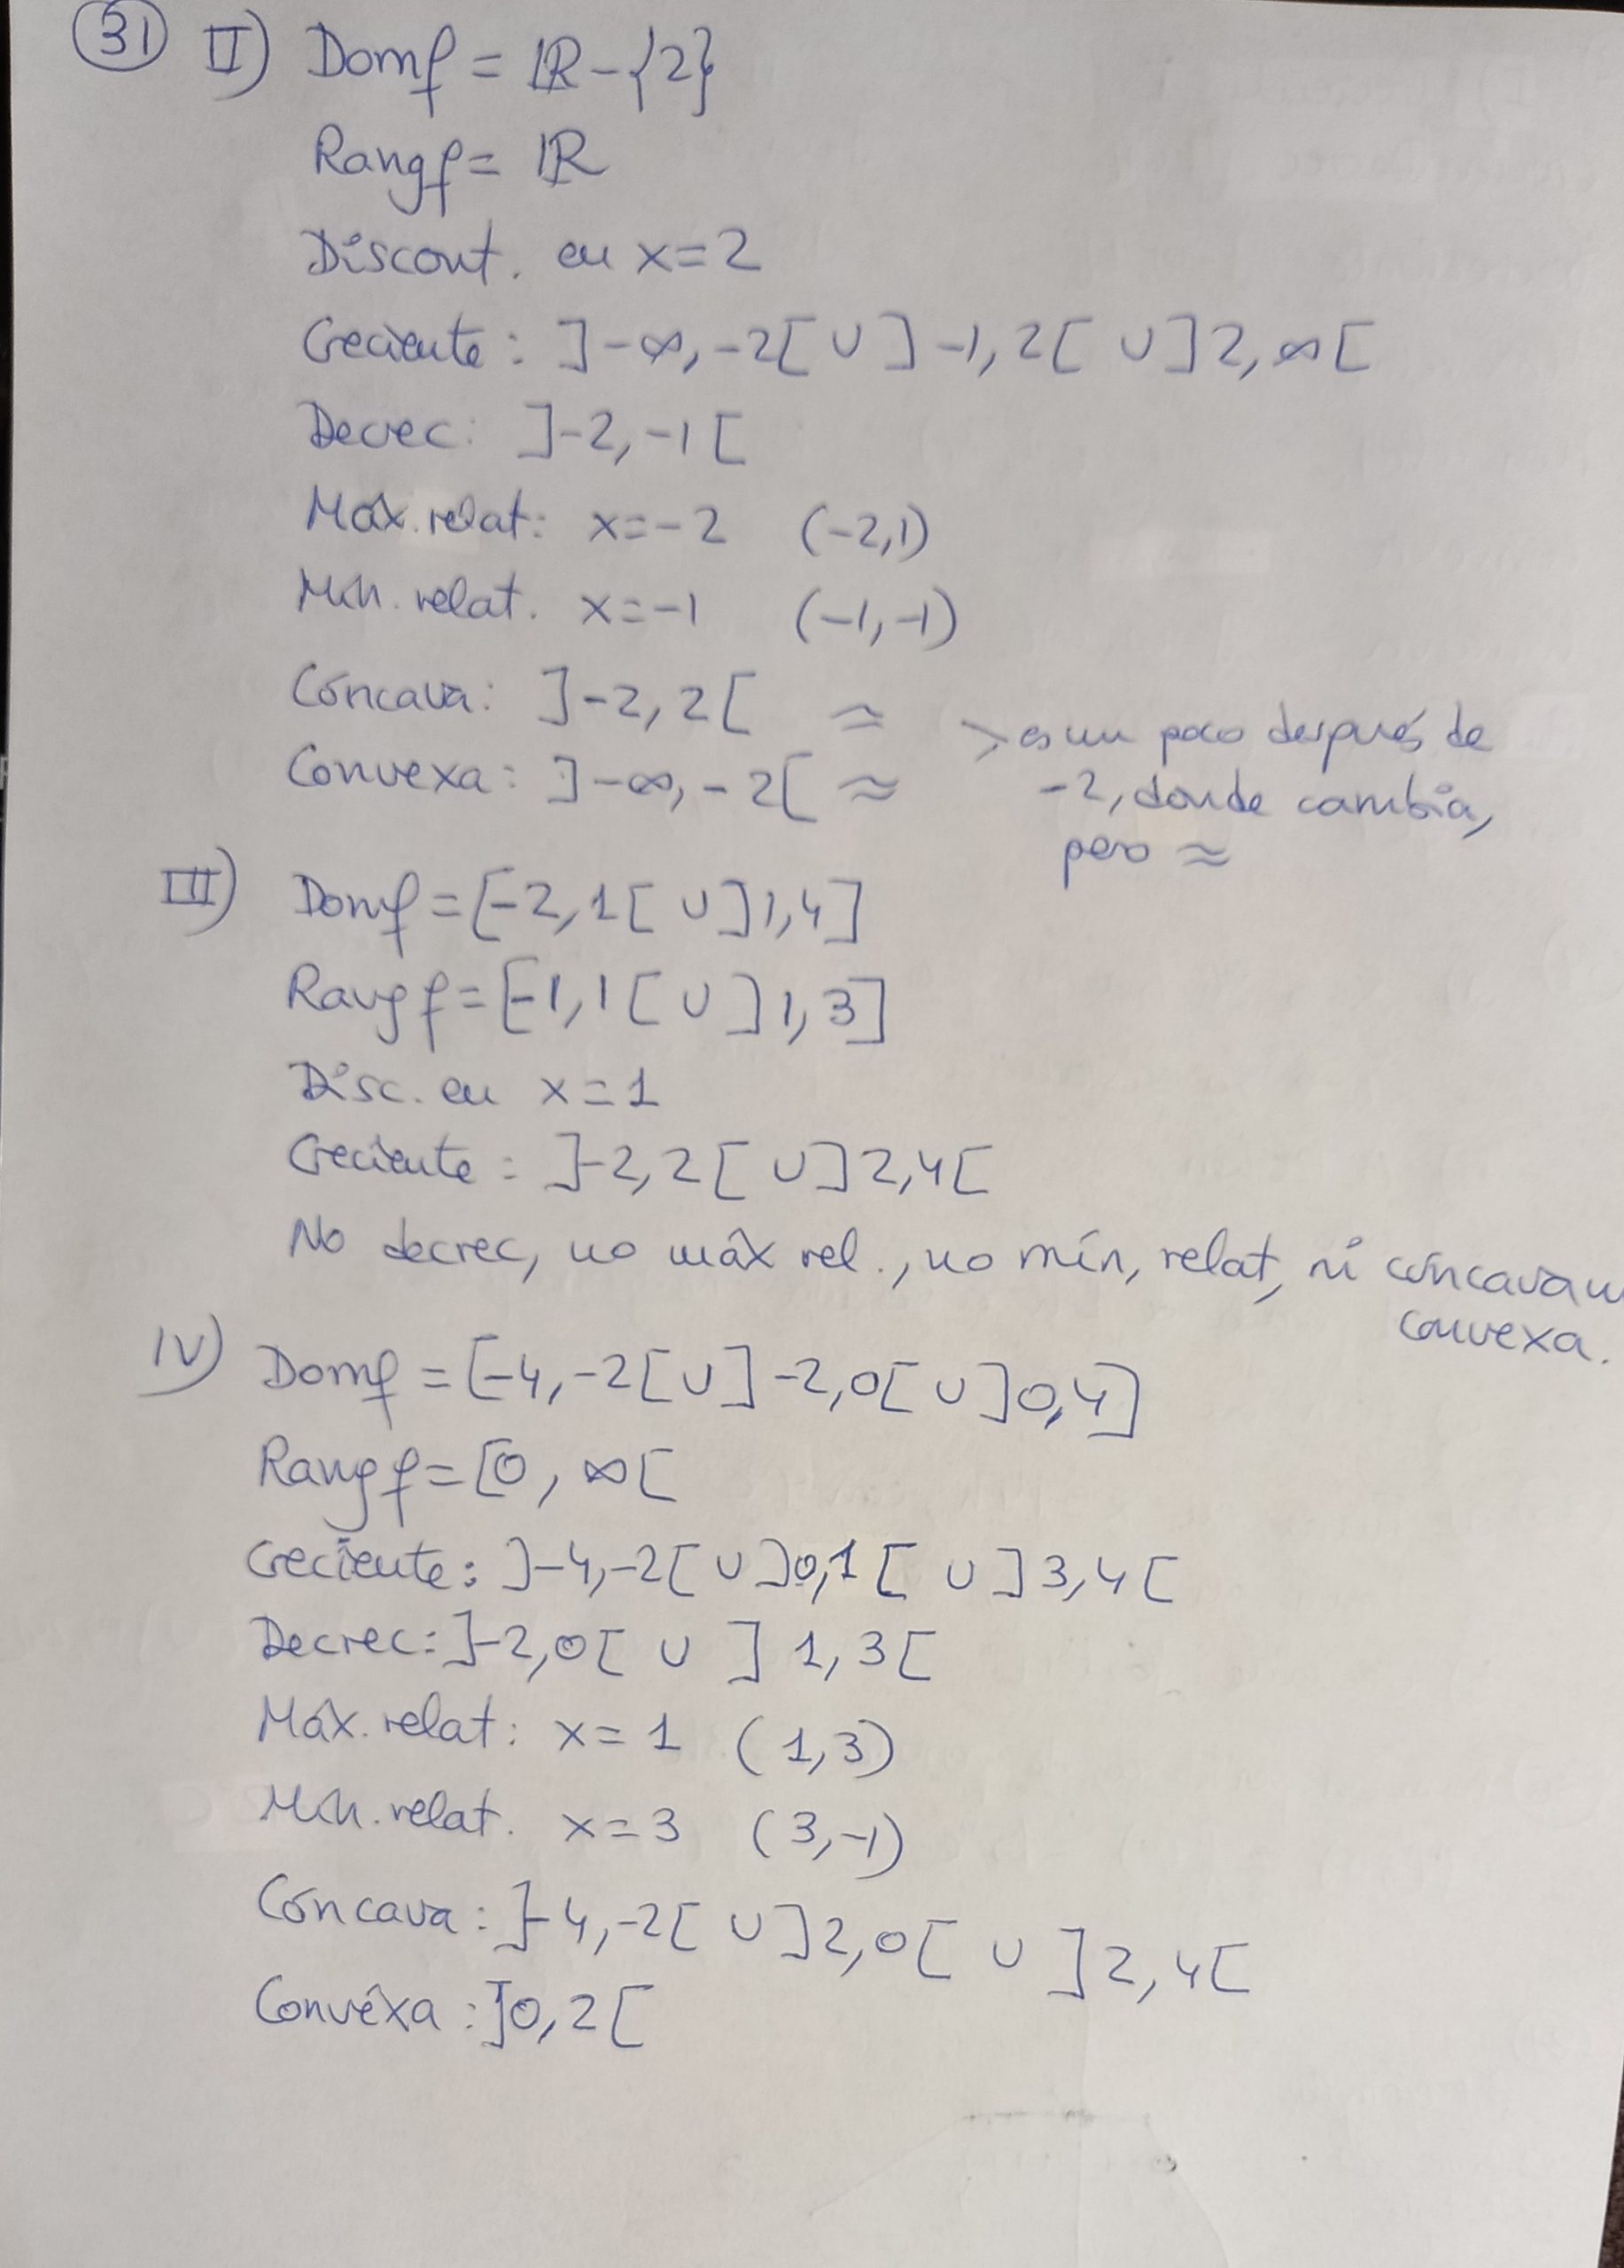 31 II) Domf = ℝ-{2}
Rangf = ℝ
Discont. en x=2
Creciente: ]-∞,-2[ ∪ ]-1,2[ ∪ ]2,∞[
Decrec: ]-2,-1[
Máx.relat: x=-2 (-2,1)
Mín.relat. x=-1 (-1,-1)
Cóncava: ]-2,2[ ≈ > es un poco después de
Convexa: ]-∞,-2[ ≈ -2, donde cambia,
pero ≈
III) Domf = [-2,1[ ∪ ]1,4]
Rangf = [-1,1[ ∪ ]1,3]
Disc. en x=1
Creciente: ]-2,2[ ∪ ]2,4[
No decrec, no máx rel., no mín, relat, ni cóncava
convexa.
IV) Domf = [-4,-2[ ∪ ]-2,0[ ∪ ]0,4]
Rangf = [0,∞[
Creciente: ]-4,-2[ ∪ ]0,1[ ∪ ]3,4[
Decrec: ]-2,0[ ∪ ]1,3[
Máx.relat: x=1 (1,3)
Mín.relat. x=3 (3,-1)
Cóncava: ]-4,-2[ ∪ ]2,0[ ∪ ]2,4[
Convéxa: ]0,2[